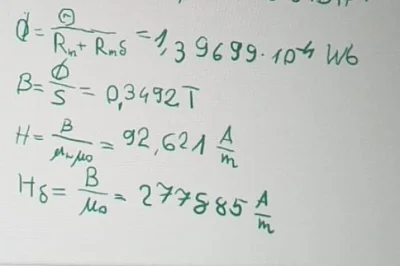 Φ = Θ / (Rm + Rmδ) = 1,39699·10⁻⁴ Wb
B = Φ / S = 0,3492T
H = B / (μr μ0) = 92,621 A/m
Hδ = B / μ0 = 277885 A/m